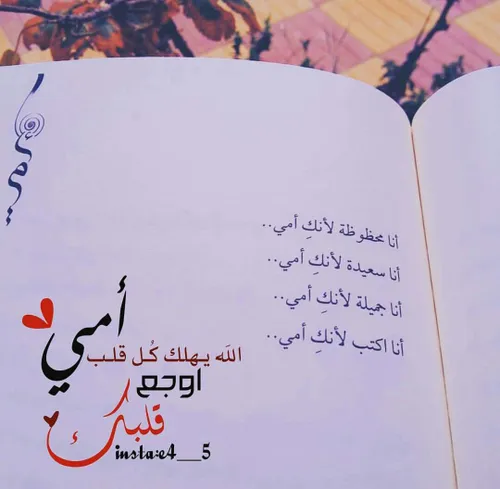 أنا محظوظة لأنكِ أمي..
أنا سعيدة لأنكِ أمي..
أنا جميلة لأنكِ أمي..
أنا اكتب لأنكِ أمي..
أمي
الله يهلك كُل قلب
اوجع
قلبك
insta:e4__5